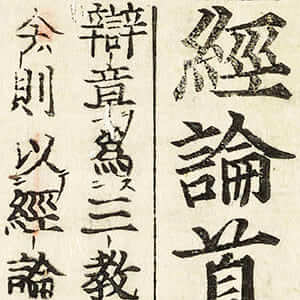 經論首
辯章為三教
今則以經論